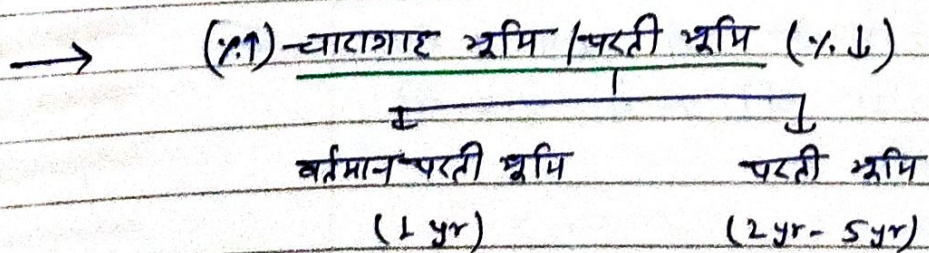 → (%↑) चारागाह भूमि / परती भूमि (%↓)
वर्तमान परती भूमि परती भूमि
(1 yr) (2 yr - 5 yr)